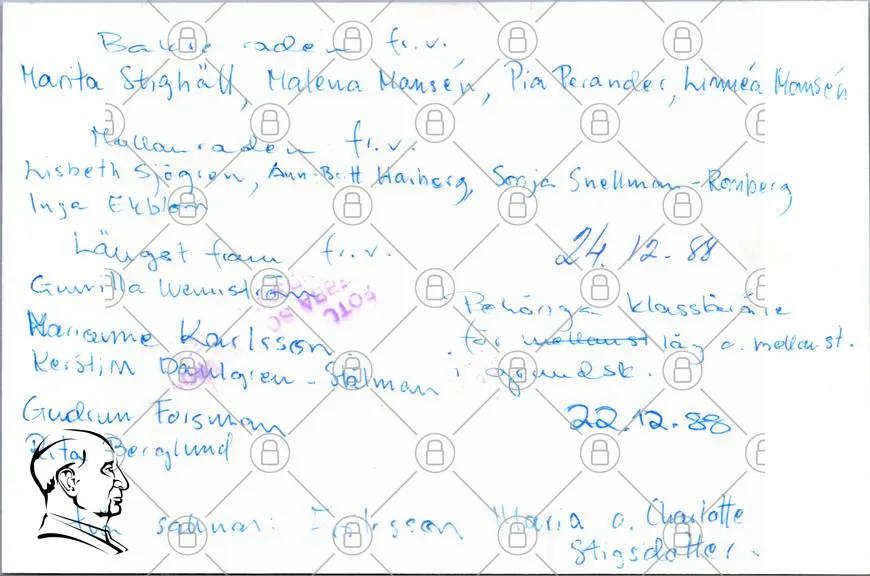 Bakre raden fr.v.
Marita Stighäll, Malena Månsén, Pia Perander, Linnéa Månsén
Mellanraden fr.v.
Lisbeth Sjögren, Ann-Britt Harberg, Sonja Snellman-Romberg
Inga Ekblom
Längst fram fr.v.
24.12.88
Gunilla Wennström
FOTO
Behöriga klasslärare
Marianne Karlsson
för mellanst låg o. mellanst.
Kerstin Dahlgren-Stålman
i grundsk.
Gudrun Forsman
22.12.88
Rita Berglund
saknar: Eriksson Maria o. Charlotte
Stigsdotter.